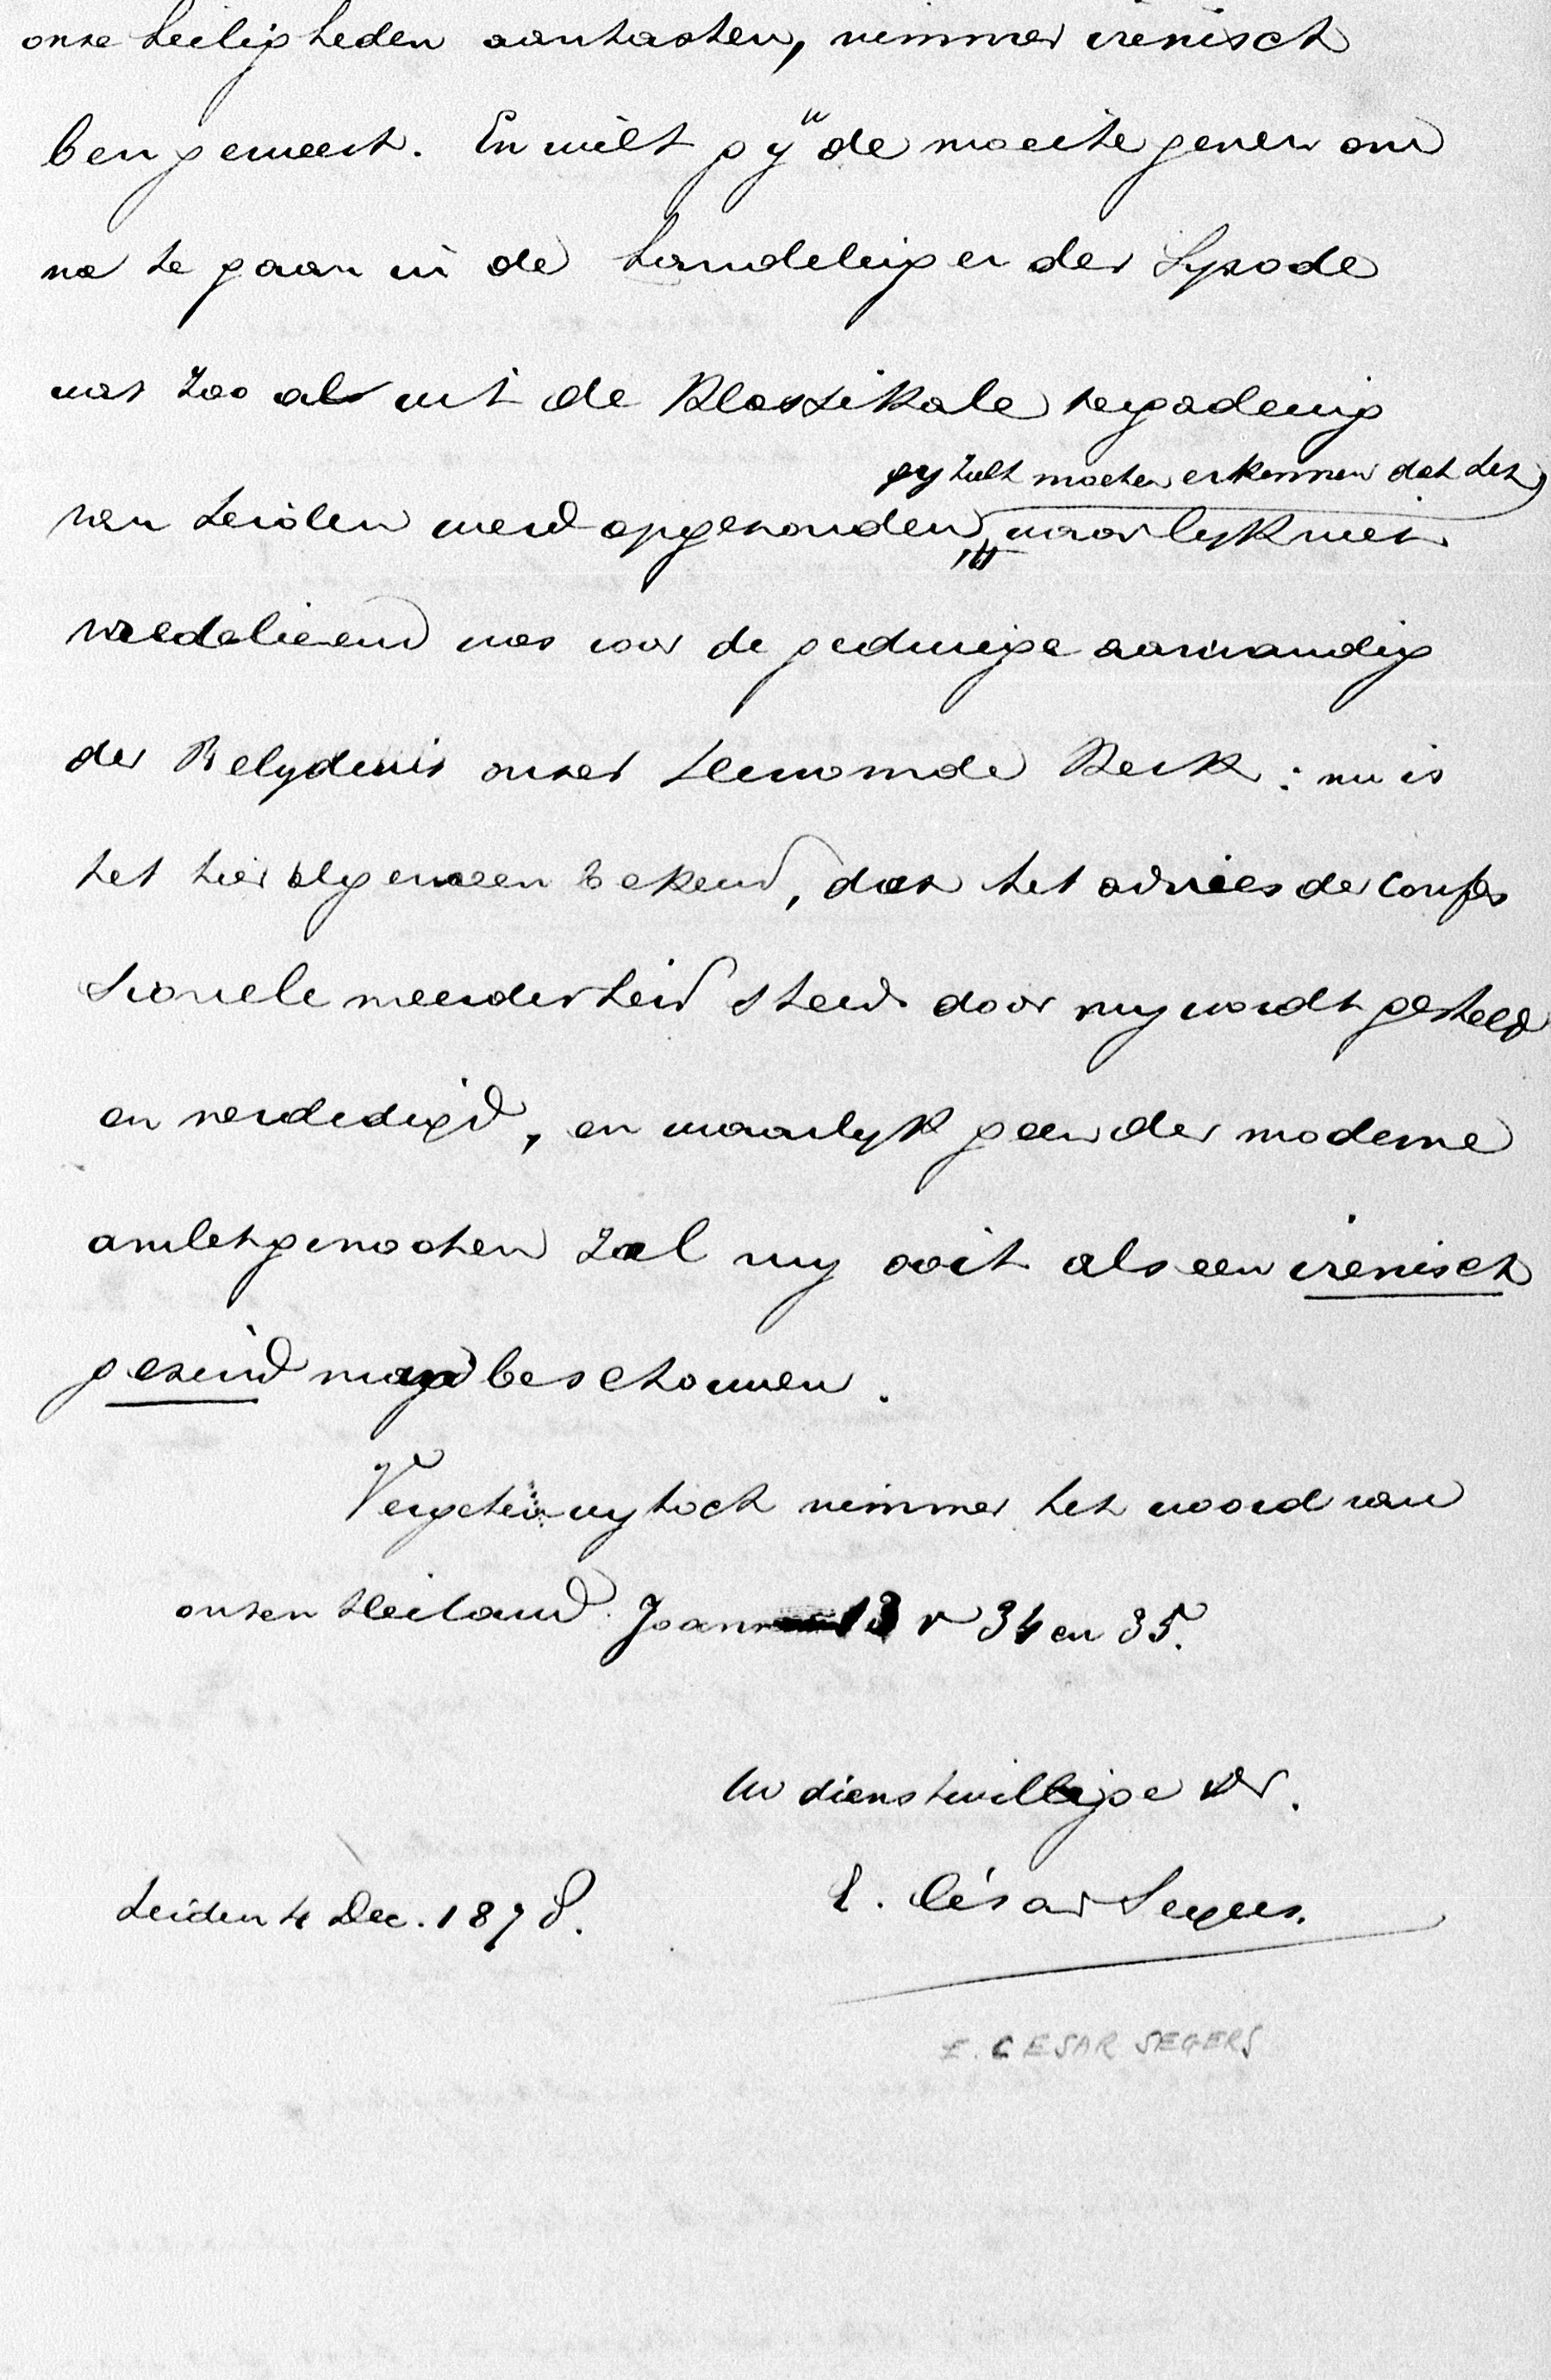 onze heiligheden aantasten, nimmer irenisch
ben geweest. En wilt gij u de moeite geven om
na te gaan in de handelingen der Synode
wat zoo al uit de Klassikale vergadering
gij zult moeten erkennen dat het
van Leiden werd opgezonden, waarlijk niet
vredelievend was voor de gedweeë aanranding
der Belydenis onzer Hervormde Kerk: nu is
het hier algemeen bekend, dat het advies der confes
sionele meerderheid steeds door my wordt gesteld
en verdedigd, en waarlyk geen der moderne
ambtgenooten zal my ooit als een irenisch
gezind man beschouwen.
Vergeten wy toch nimmer het woord van
onzen Heiland. Joann 13 v 34 en 35.
Uw dienstwillige Dr.
Leiden 4 Dec. 1878.
E. César Segers.
E. CESAR SEGERS